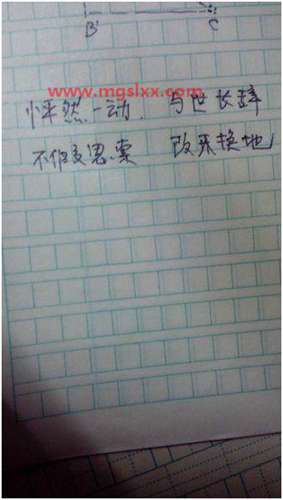 B' C
www.mgslxx.com
怦然一动. 与世长辞
不假思索 改天换地